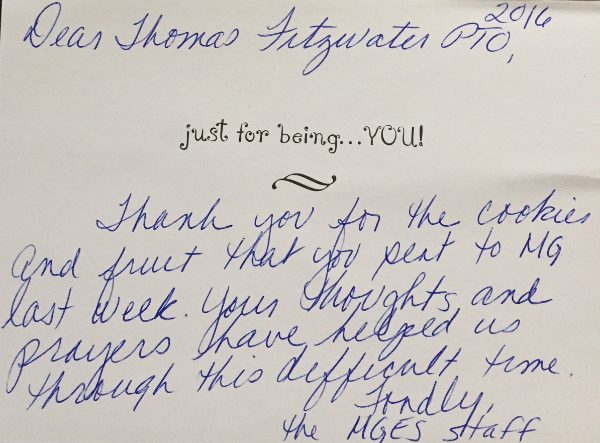 2016
Dear Thomas Fitzwater PTO,
just for being...YOU!
Thank you for the cookies
and fruit that you sent to MG
last week. Your thoughts and
prayers have helped us
through this difficult time.
Fondly,
the MGES staff